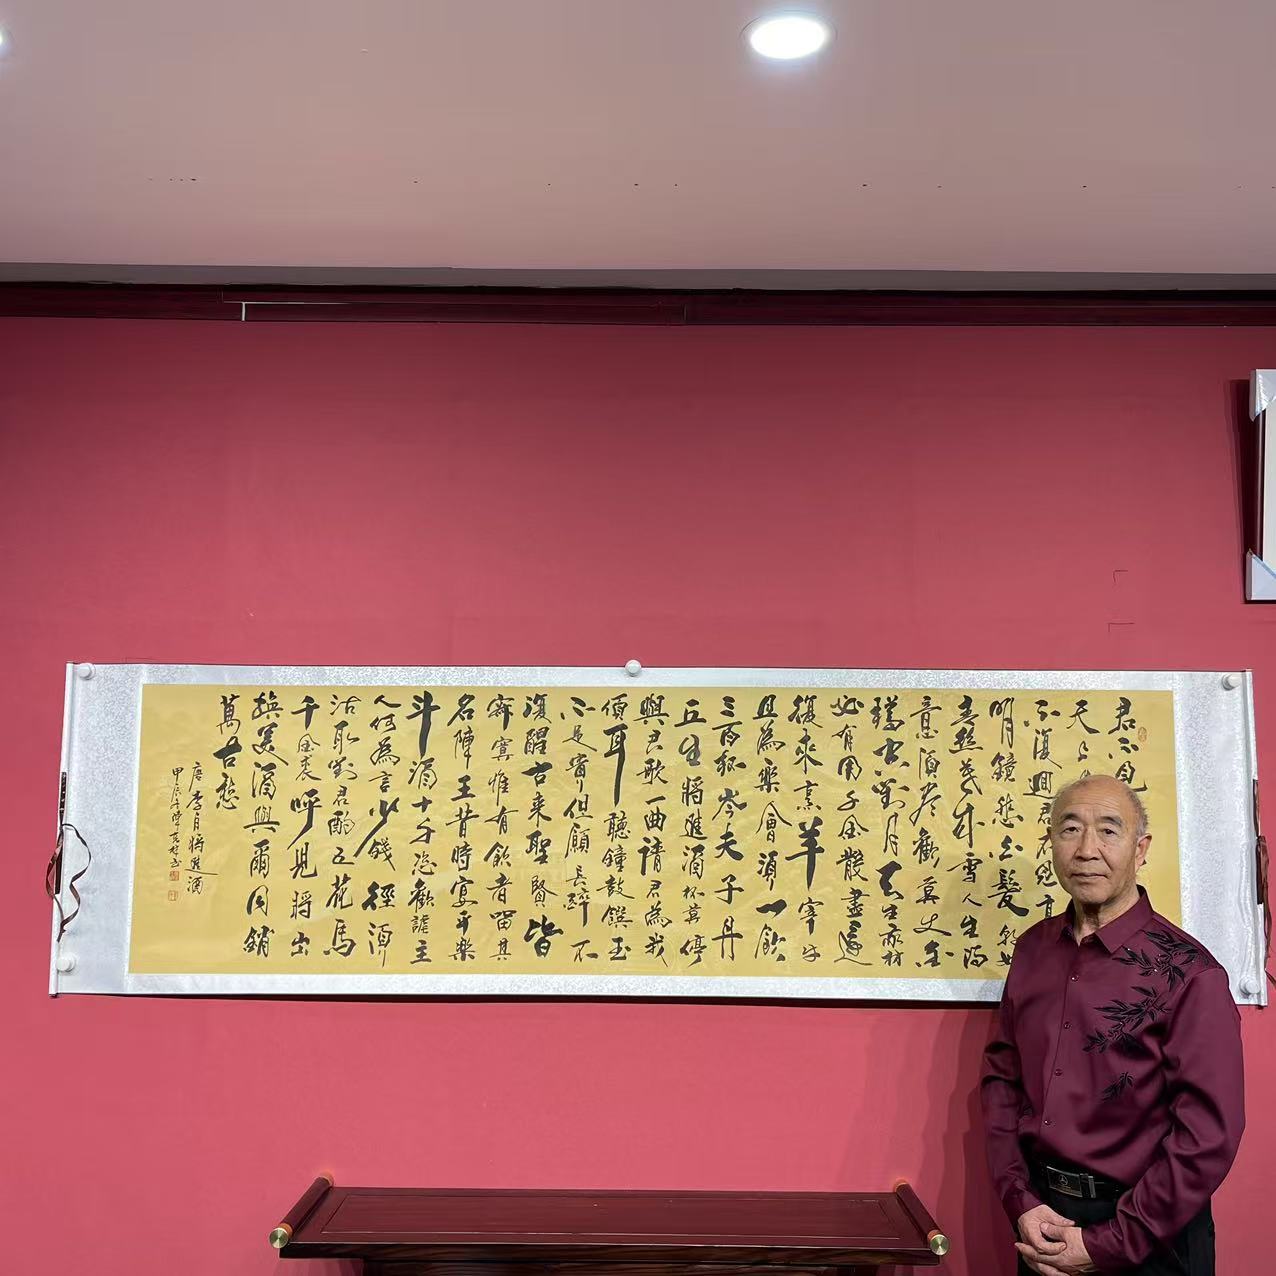 君不見
天上
不復迴君不見高
明鏡悲白髮朝如
青絲暮成雪人生得
意須盡歡莫使金
樽空對月天生我材
必有用千金散盡還
復來烹羊宰牛
且為樂會須一飲
三百杯岑夫子丹
丘生將進酒杯莫停
與君歌一曲請君為我
傾耳聽鐘鼓饌玉
不足貴但願長醉不
復醒古來聖賢皆
寂寞惟有飲者留其
名陳王昔時宴平樂
斗酒十千恣歡謔主
人何為言少錢徑須
沽取對君酌五花馬
千金裘呼兒將出
換美酒與爾同銷
萬古愁
唐李白將進酒
甲辰年